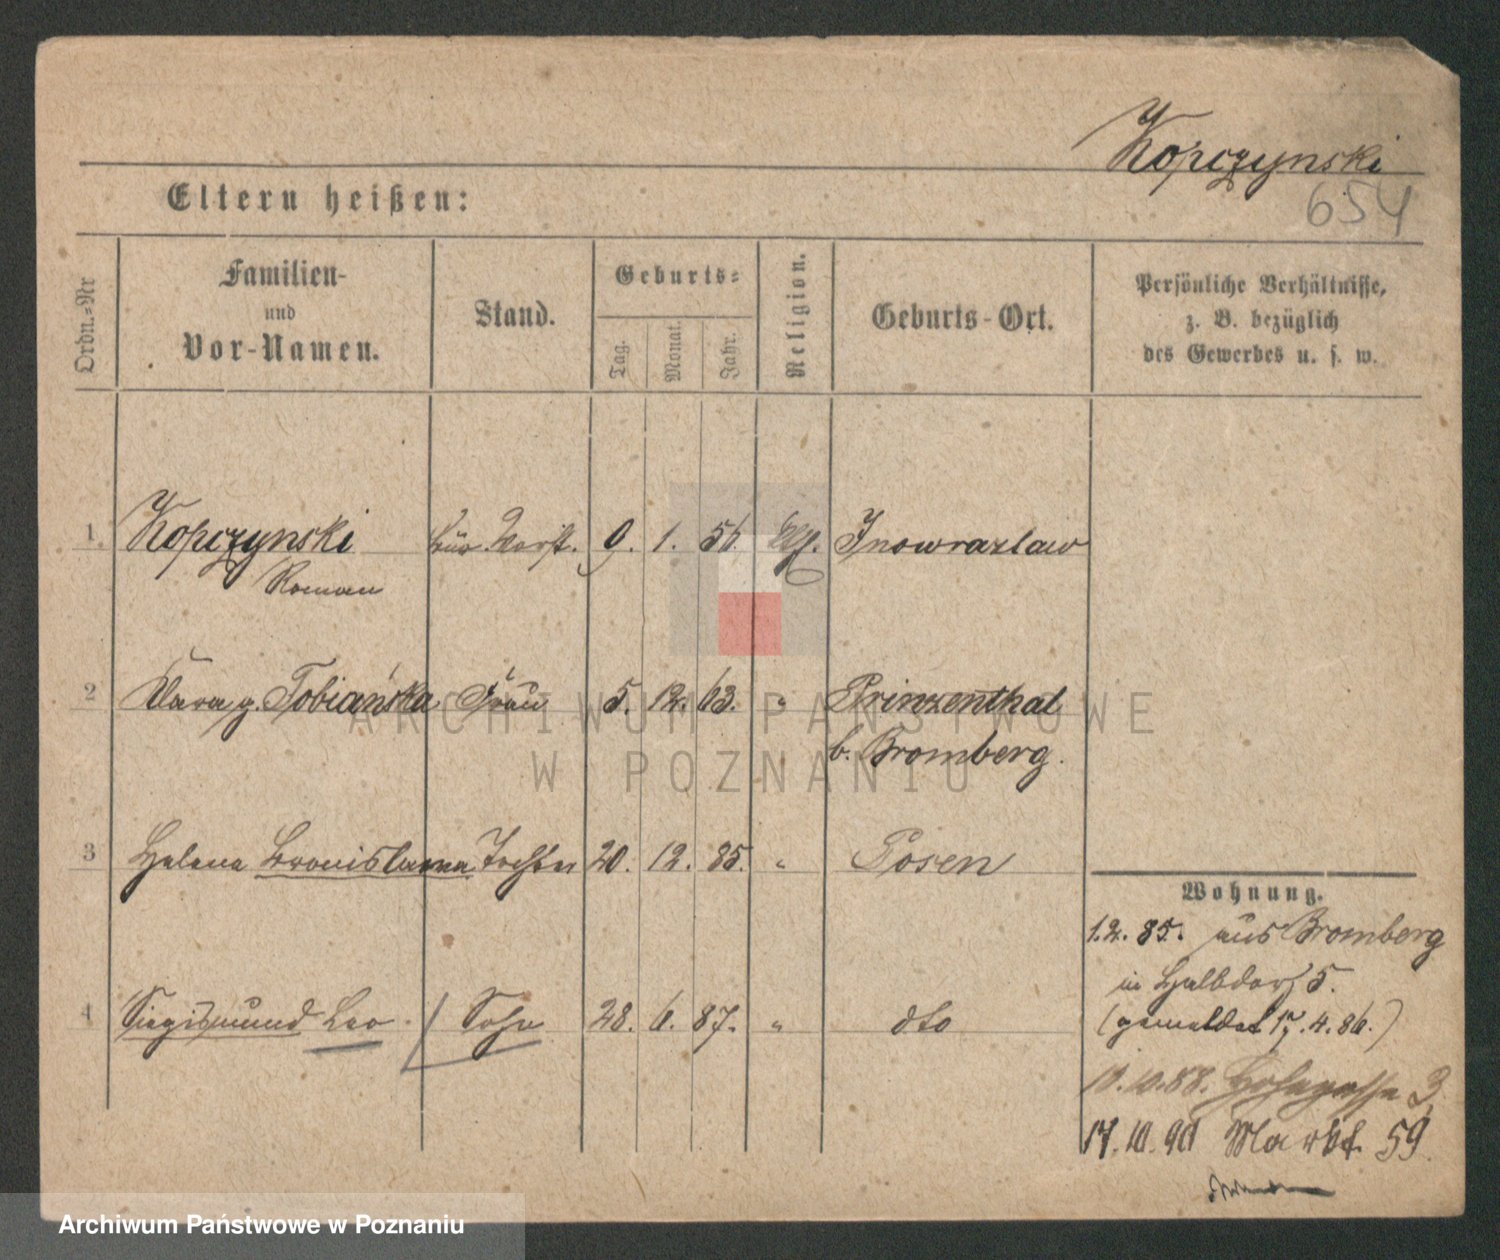 Kopczynski
654
Eltern heißen:
Ordn.-Nr
Familien-
und
Vor-Namen.
Stand.
Geburts-
Tag.
Monat.
Jahr.
Religion.
Geburts-Ort.
Persönliche Verhältnisse,
z. B. bezüglich
des Gewerbes u. s. w.
1. Kopczynski Bür. Vorst. 9. 1. 56. Inowrazlaw
Roman
2 Clara g. Tobiańska Frau 5. 12. 63. " Prinzenthal
b. Bromberg.
3 Helena Bronislawa Tochter 20. 12. 85. " Posen
4 Siegismund Leo. Sohn 28. 6. 87. " dto
Wohnung.
1.2.85. aus Bromberg
in Halbdorf 5.
(gemeldet 17.4.86.)
10.88. 3
17.10.90 Markt 59.
ARCHIWUM PAŃSTWOWE
W POZNANIU
Archiwum Państwowe w Poznaniu